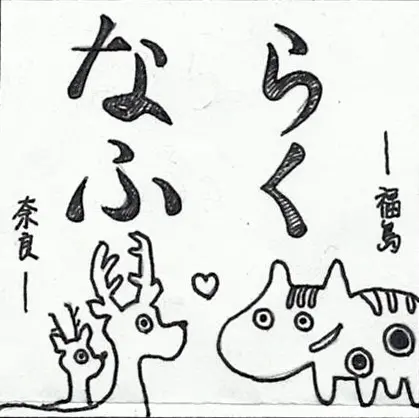 らく
なふ
福島
奈良